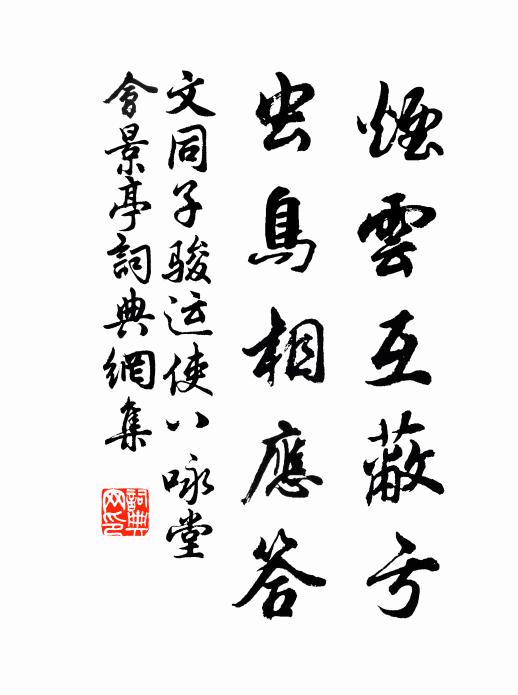 煙雲互蔽亏
虫鳥相應答
文同子骏运使八咏堂
會景亭詞典網集
詞典网印